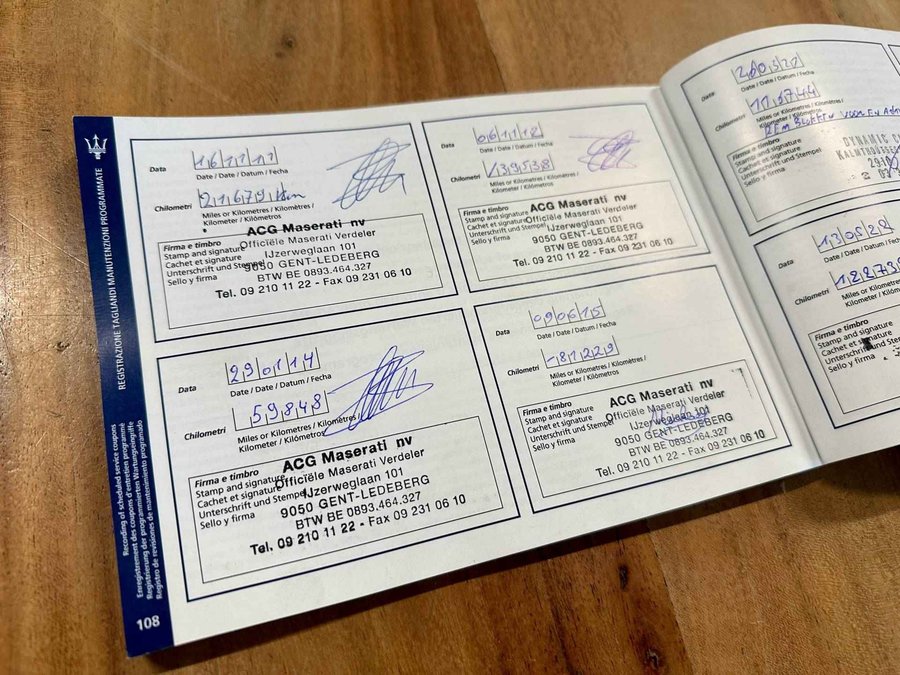 REGISTRAZIONE TAGLIANDI MANUTENZIONI PROGRAMMATE
Recording of scheduled service coupons
Enregistrement des coupons d'entretien programmé
Registrierung der programmierten Wartungseingriffe
Registro de revisiones de mantenimiento programado
108
Data
16 11 11
Date / Date / Datum / Fecha
Chilometri
21679 km
Miles or Kilometres / Kilomètres /
Kilometer / Kilómetros
Firma e timbro
Stamp and signature
Cachet et signature
Unterschrift und Stempel
Sello y firma
ACG Maserati nv
Officiële Maserati Verdeler
IJzerweglaan 101
9050 GENT-LEDEBERG
BTW BE 0893.464.327
Tel. 09 210 11 22 - Fax 09 231 06 10
Data
06 11 12
Date / Date / Datum / Fecha
Chilometri
39538
Miles or Kilometres / Kilomètres /
Kilometer / Kilómetros
Firma e timbro
Stamp and signature
Cachet et signature
Unterschrift und Stempel
Sello y firma
ACG Maserati nv
Officiële Maserati Verdeler
IJzerweglaan 101
9050 GENT-LEDEBERG
BTW BE 0893.464.327
Tel. 09 210 11 22 - Fax 09 231 06 10
Data
29 01 14
Date / Date / Datum / Fecha
Chilometri
59848
Miles or Kilometres / Kilomètres /
Kilometer / Kilómetros
Firma e timbro
Stamp and signature
Cachet et signature
Unterschrift und Stempel
Sello y firma
ACG Maserati nv
Officiële Maserati Verdeler
IJzerweglaan 101
9050 GENT-LEDEBERG
BTW BE 0893.464.327
Tel. 09 210 11 22 - Fax 09 231 06 10
Data
09 06 15
Date / Date / Datum / Fecha
Chilometri
81229
Miles or Kilometres / Kilomètres /
Kilometer / Kilómetros
Firma e timbro
Stamp and signature
Cachet et signature
Unterschrift und Stempel
Sello y firma
ACG Maserati nv
Officiële Maserati Verdeler
IJzerweglaan 101
9050 GENT-LEDEBERG
BTW BE 0893.464.327
Tel. 09 210 11 22 - Fax 09 231 06 10
Data
Date / Date / Datum / Fecha
Chilometri
Miles or Kilometres / Kilomètres /
Kilometer / Kilómetros
Firma e timbro
Stamp and signature
Cachet et signature
Unterschrift und Stempel
Sello y firma
DYNAMIC
Data
13 05 22
Date / Date / Datum / Fecha
Chilometri
Miles or Kilometres /
Kilometer / Kilómetros
Firma e timbro
Stamp and signature
Cachet et signature
Unterschrift und Stempel
Sello y firma